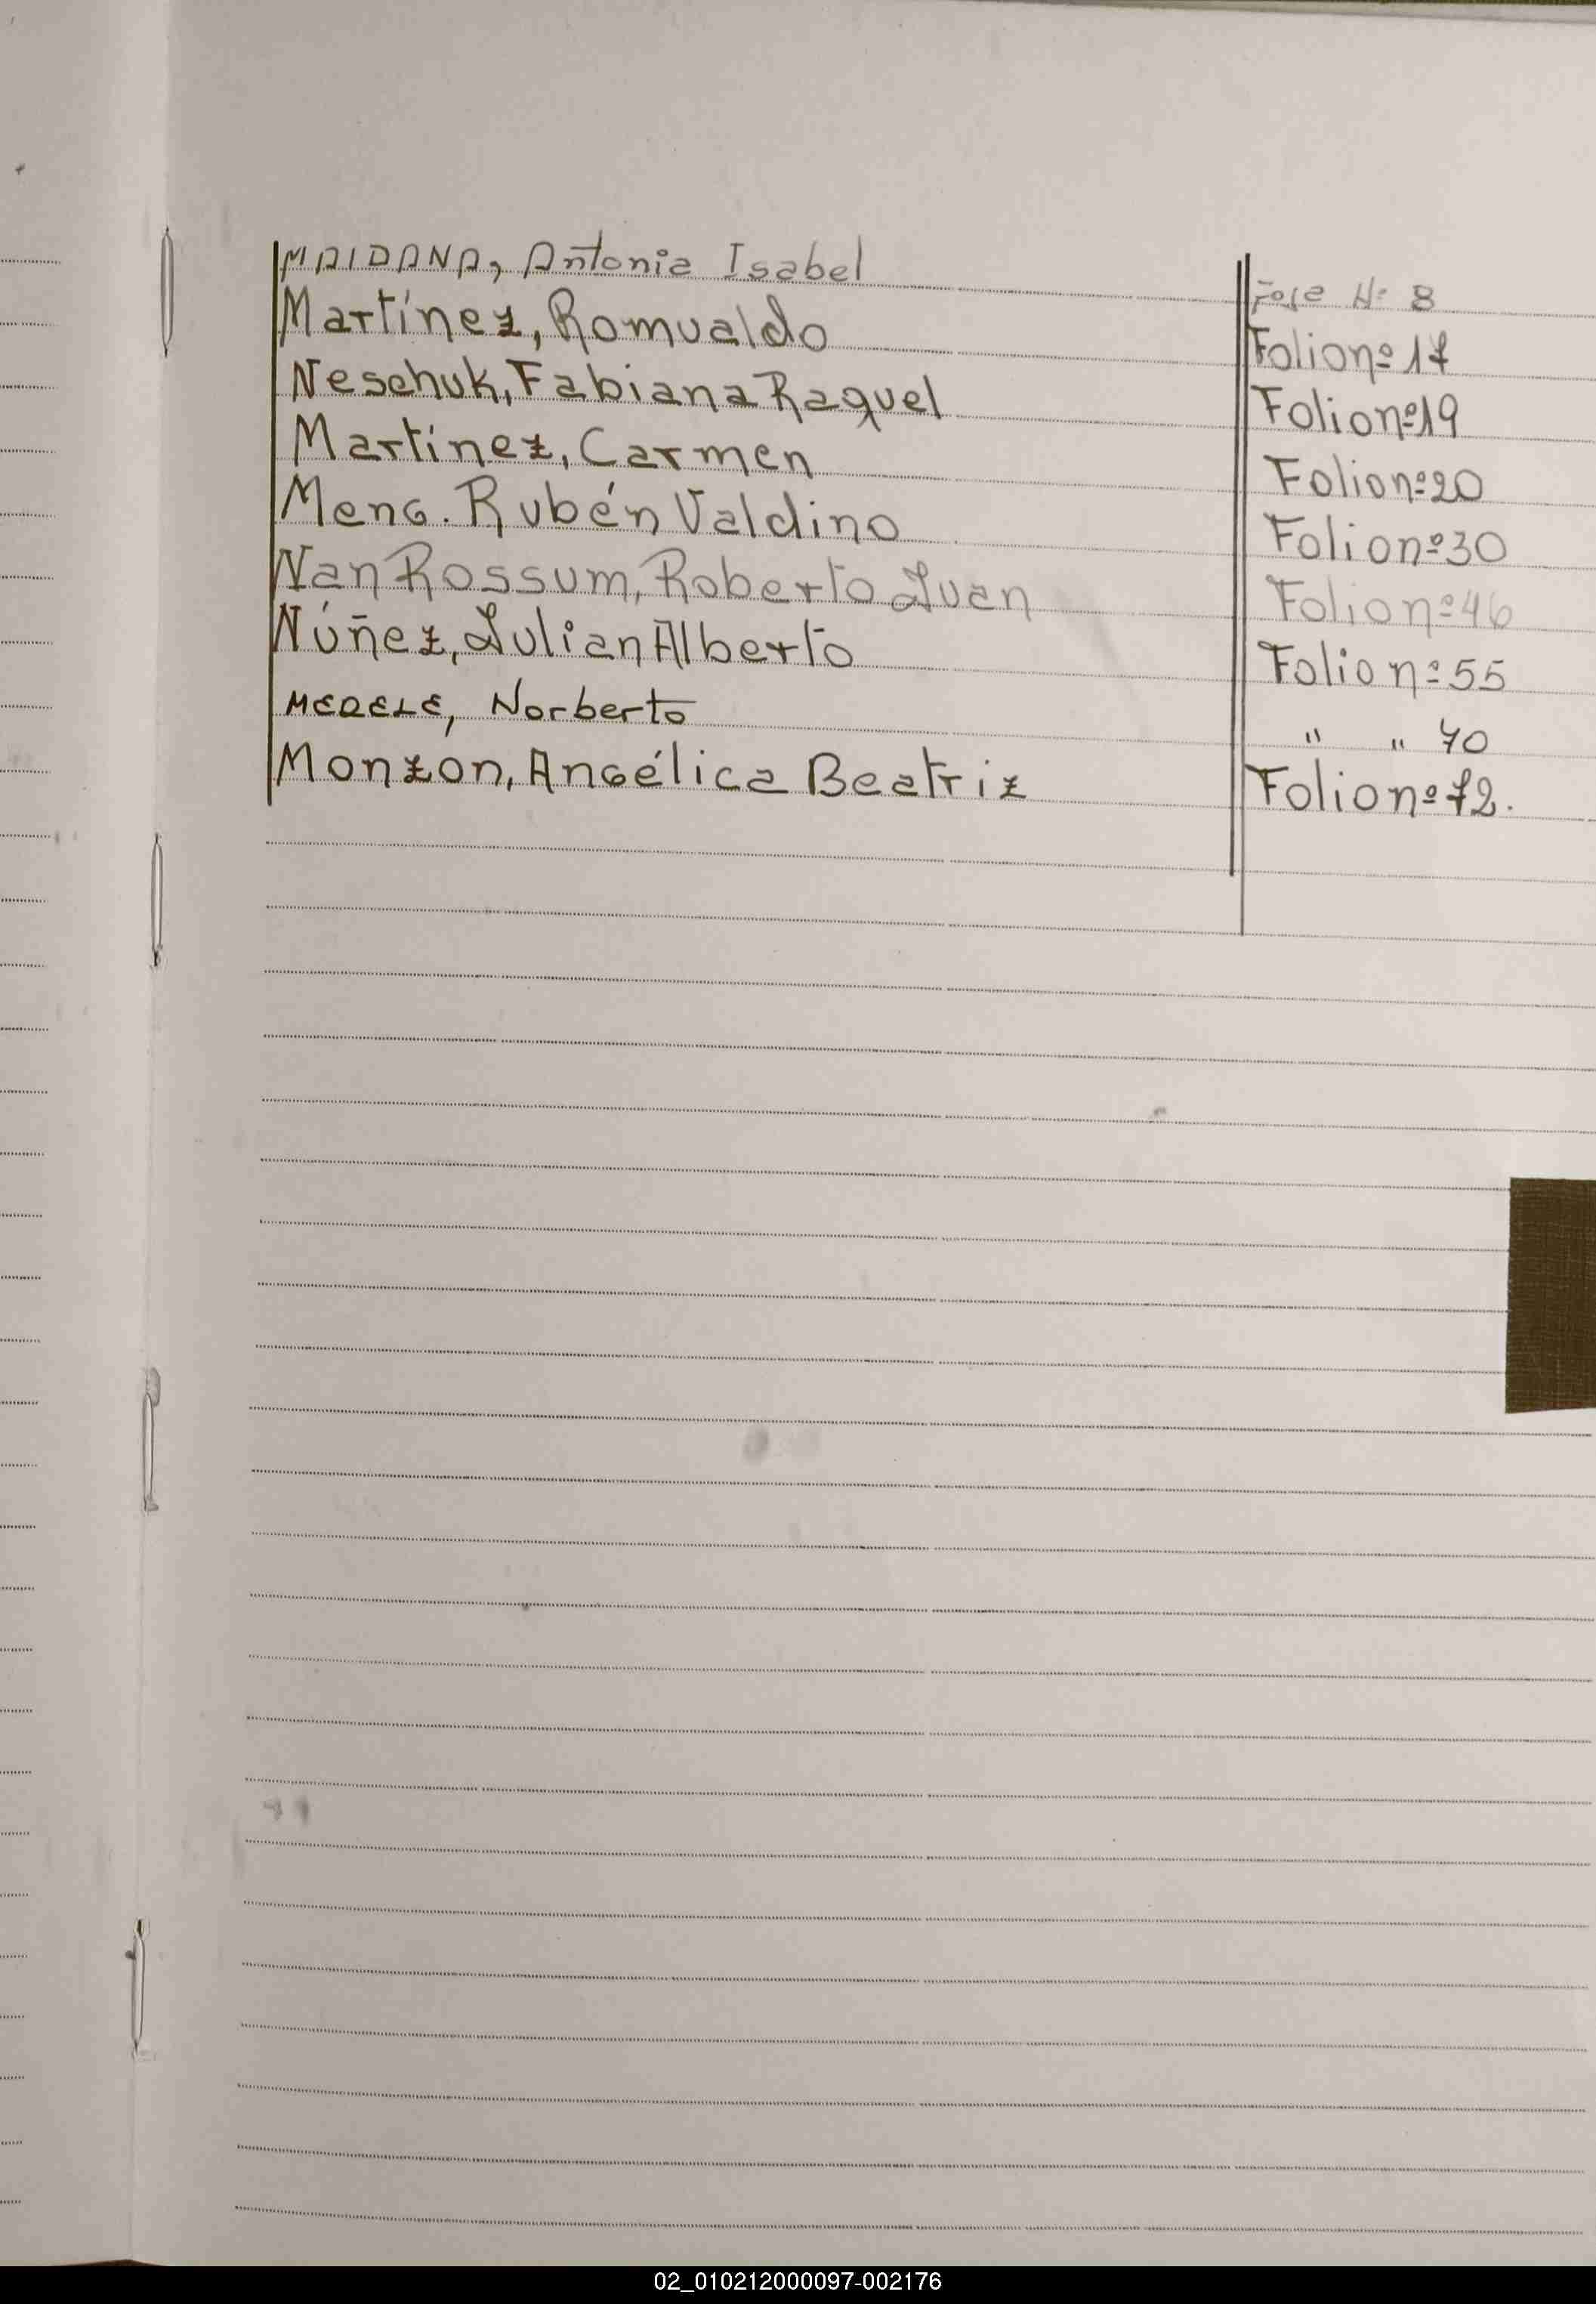 MAIDANA, Antonia Isabel Foja Nº 8
Martínez, Romualdo Folio nº 17
Neschuk, Fabiana Raquel Folio nº 19
Martínez, Carmen Folio nº 20
Meng. Rubén Valdino Folio nº 30
Van Rossum, Roberto Juan Folio nº 46
Núñez, Julian Alberto Folio nº 55
MEDELE, Norberto " " 70
Monzón, Angélica Beatriz Folio nº 72.
02_010212000097-002176